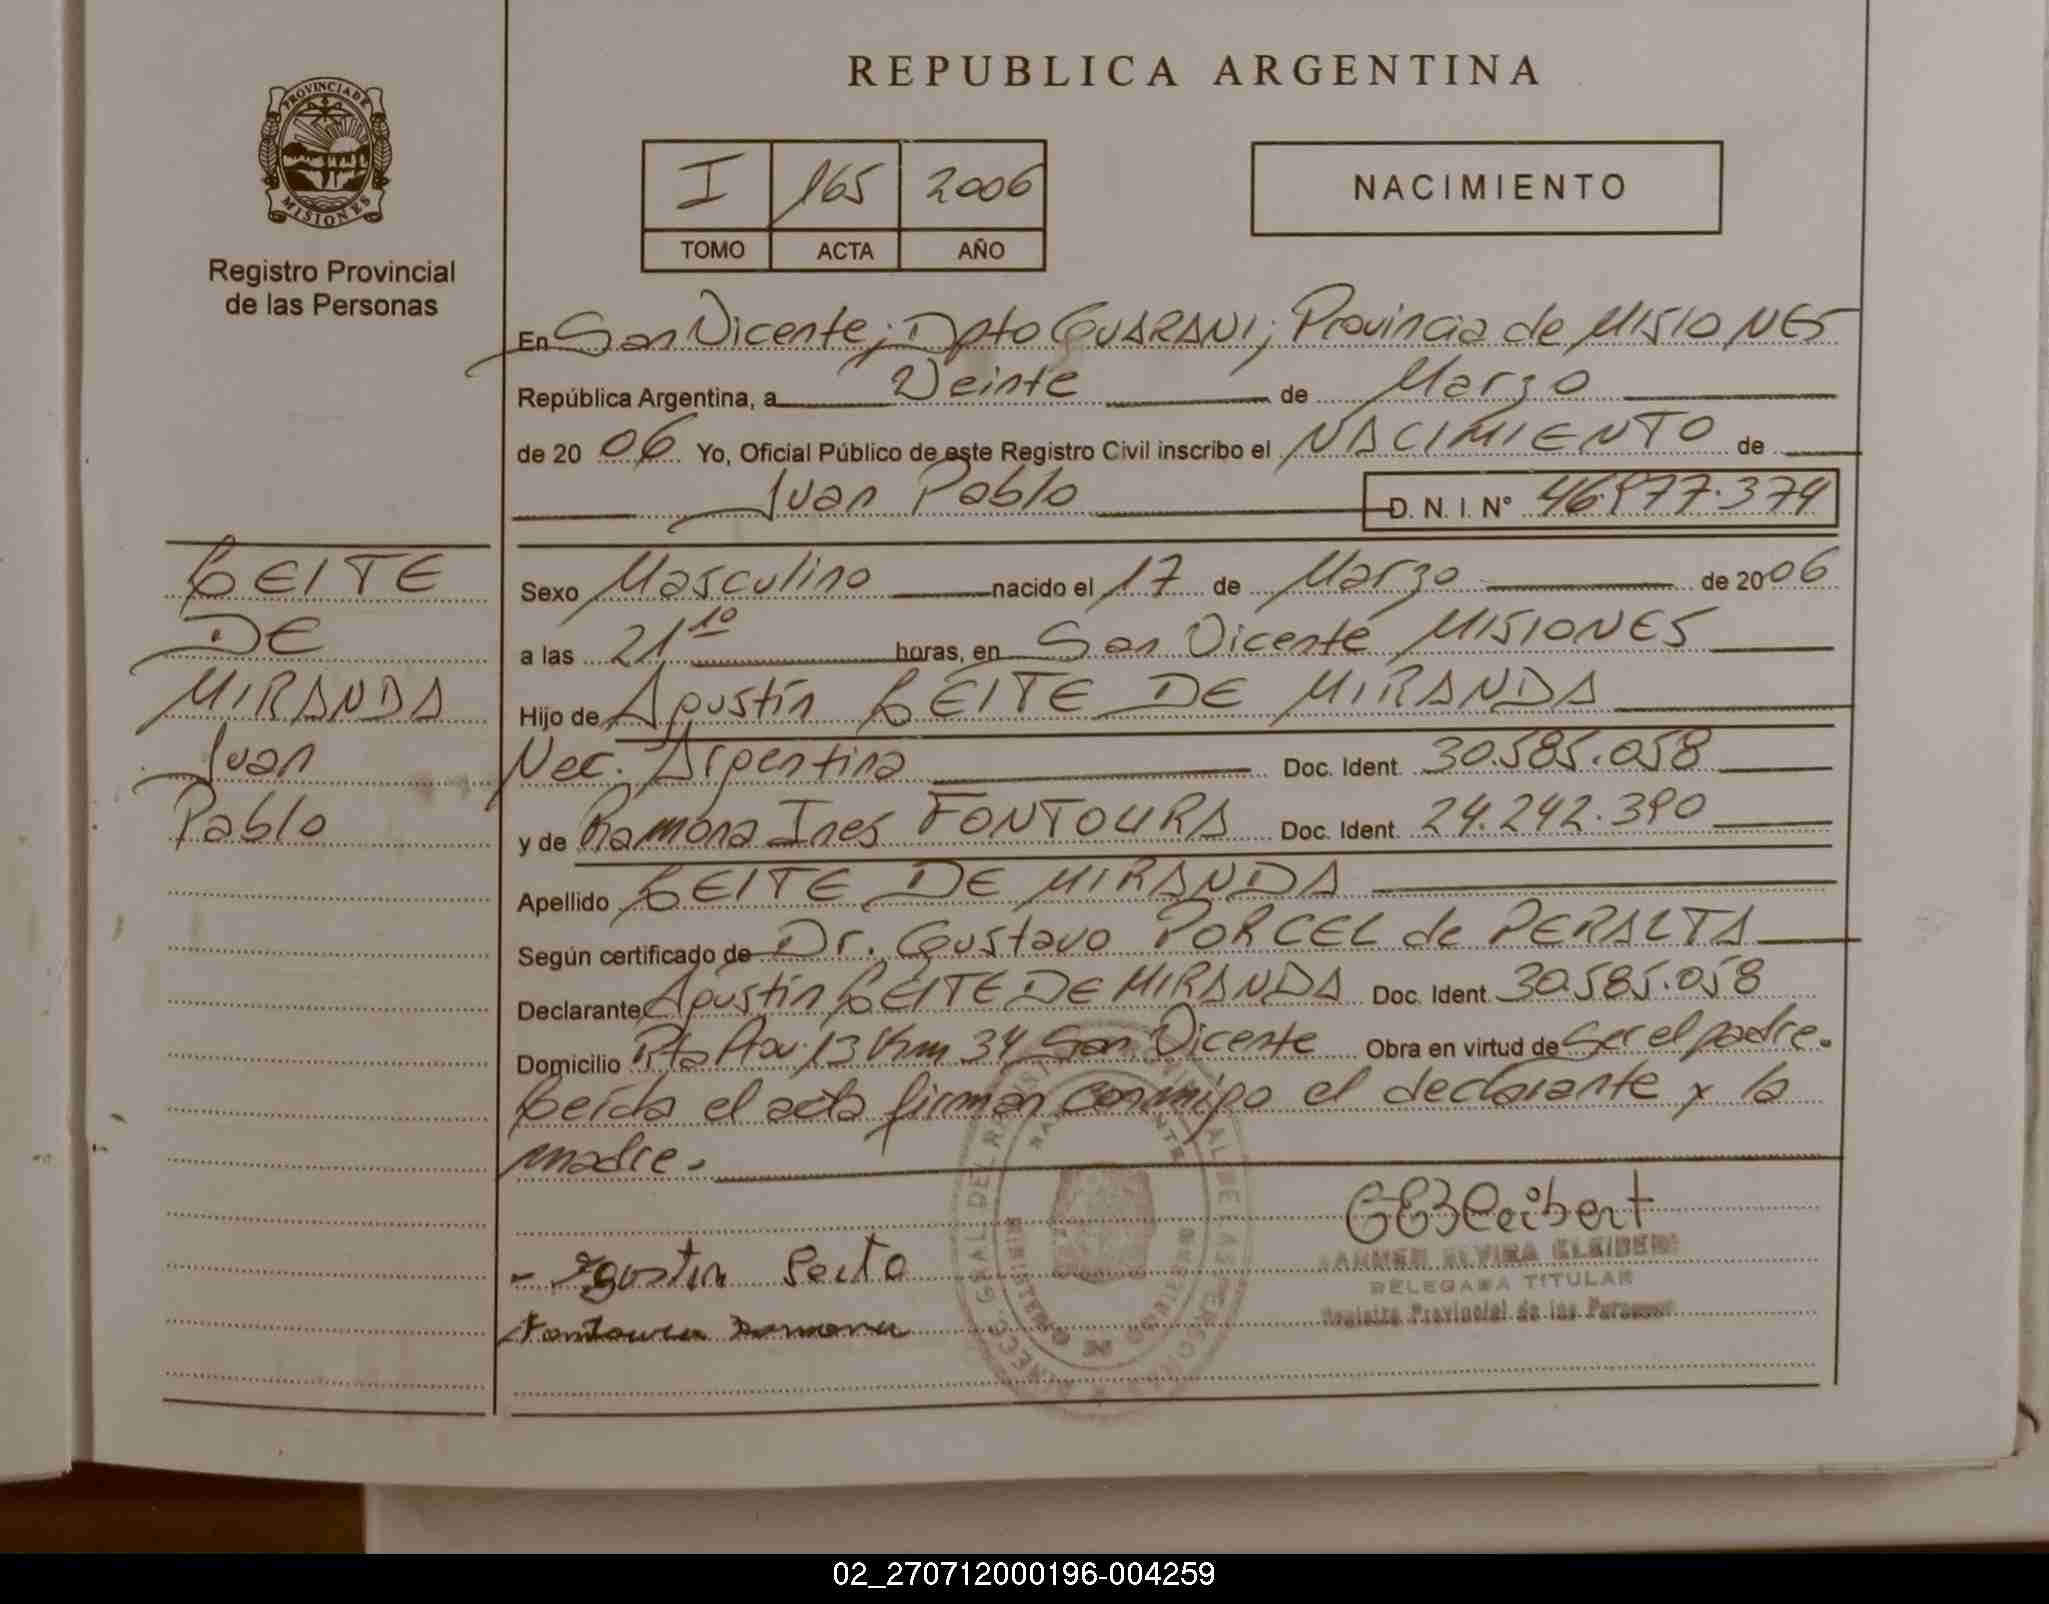 PROVINCIA DE
MISIONES
Registro Provincial
de las Personas
LEITE
DE
MIRANDA
Juan
Pablo
REPUBLICA ARGENTINA
I 165 2006
TOMO ACTA AÑO
NACIMIENTO
En San Vicente; Dpto GUARANI; Provincia de MISIONES
República Argentina, a Veinte de Marzo
de 2006 Yo, Oficial Público de este Registro Civil inscribo el NACIMIENTO de
Juan Pablo D. N. I. Nº
Sexo Masculino nacido el 17 de Marzo de 2006
a las 21 10 horas, en San Vicente MISIONES
Hijo de Agustín LEITE DE MIRANDA
Nac. Argentina Doc. Ident. 30.585.058
y de Ramona Ines FONTOURA Doc. Ident. 24.242.390
Apellido LEITE DE MIRANDA
Según certificado de Dr. Gustavo PORCEL de PERALTA
Declarante Agustín LEITE DE MIRANDA Doc. Ident. 30.585.058
Domicilio Rta Prov. 13 Km 34 San Vicente Obra en virtud de Ser el padre.
Leída el acta firman conmigo el declarante y la
madre.
CEKleibert
CARMEN ELVIRA KLEIBERT
DELEGADA TITULAR
Registro Provincial de las Personas
Agustin Leite
Fontoura Ramona
02_270712000196-004259